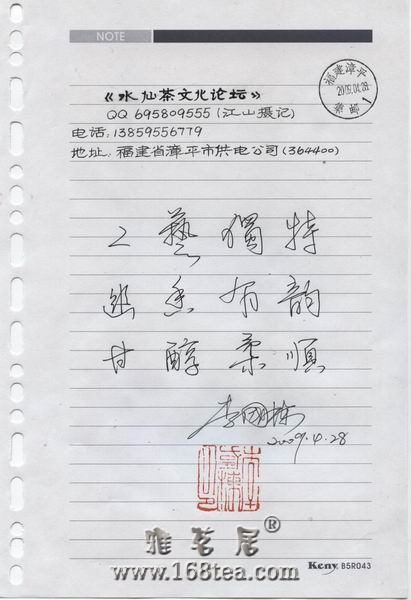 NOTE
福建漳平
2009.04.28
1
《水仙茶文化论坛》
QQ 695809555 (江山摄记)
电话: 13859556779
地址: 福建省漳平市供电公司(364400)
工藝獨特
幽香有韵
甘醇柔順
李國棟
2009.4.28
雅茗居®
www.168tea.com
Keny B5R043